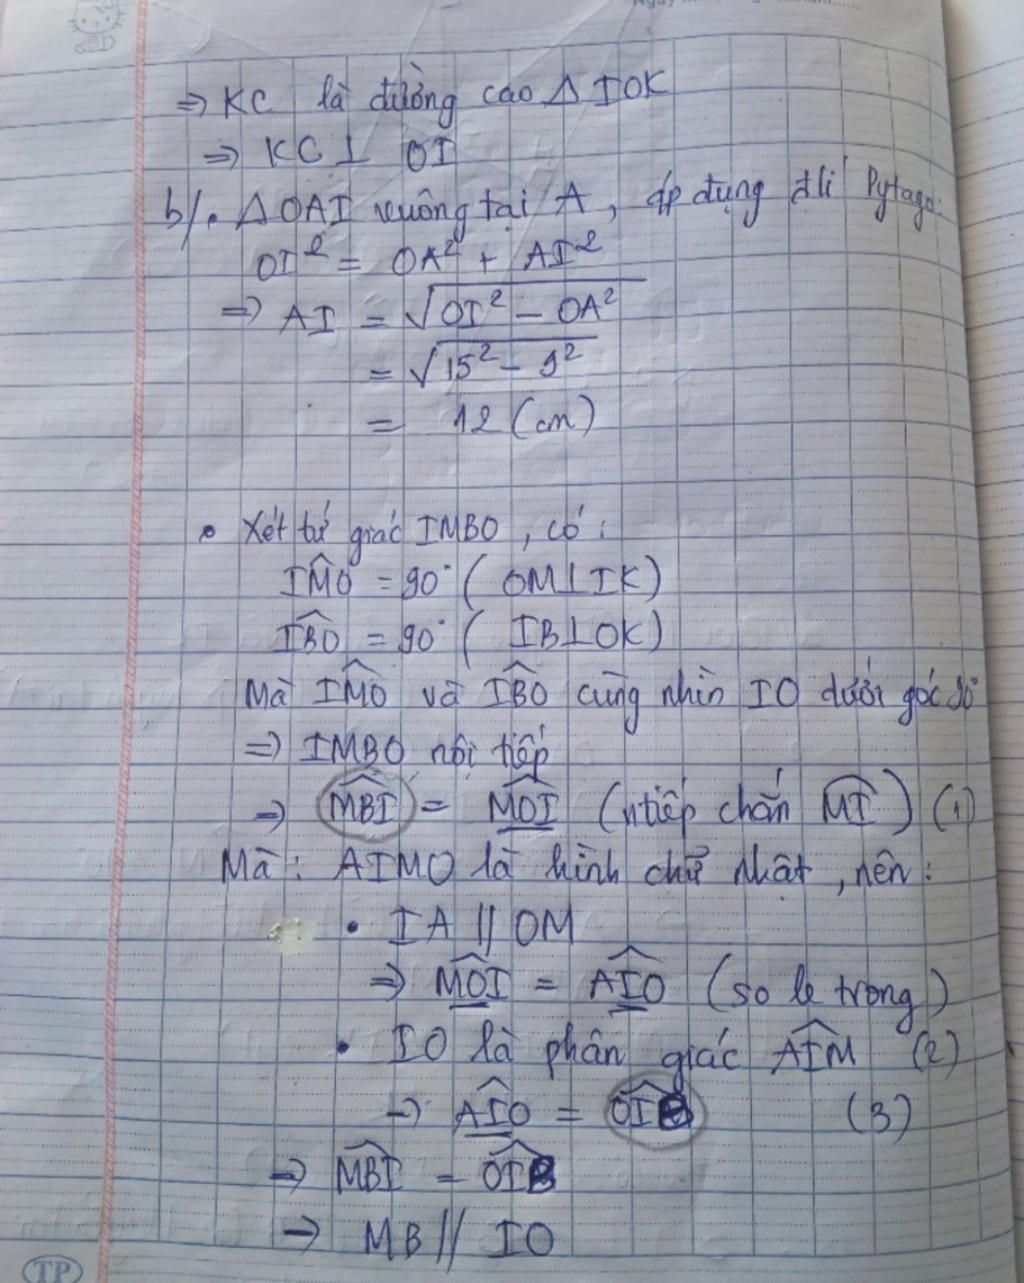 ⇒ KC là đường cao Δ IOK
⇒ KC ⊥ OI
b/. Δ OAI vuông tại A, áp dụng đlí Pytago:
OI² = OA² + AI²
⇒ AI = √(OI² - OA²)
= √(15² - 9²)
= 12 (cm)
• Xét tứ giác IMBO, có:
∠IMO = 90° (OM ⊥ IK)
∠IBO = 90° (IB ⊥ OK)
Mà ∠IMO và ∠IBO cùng nhìn IO dưới góc 90°
⇒ IMBO nội tiếp
⇒ ∠MBI = ∠MOI (ntiếp chắn MI) (1)
Mà: AIMO là hình chữ nhật, nên:
• IA // OM
⇒ ∠MOI = ∠AIO (so le trong)
• IO là phân giác ∠AIM (2)
→ ∠AIO = ∠OIB (3)
⇒ ∠MBI = ∠OIB
→ MB // IO
TP